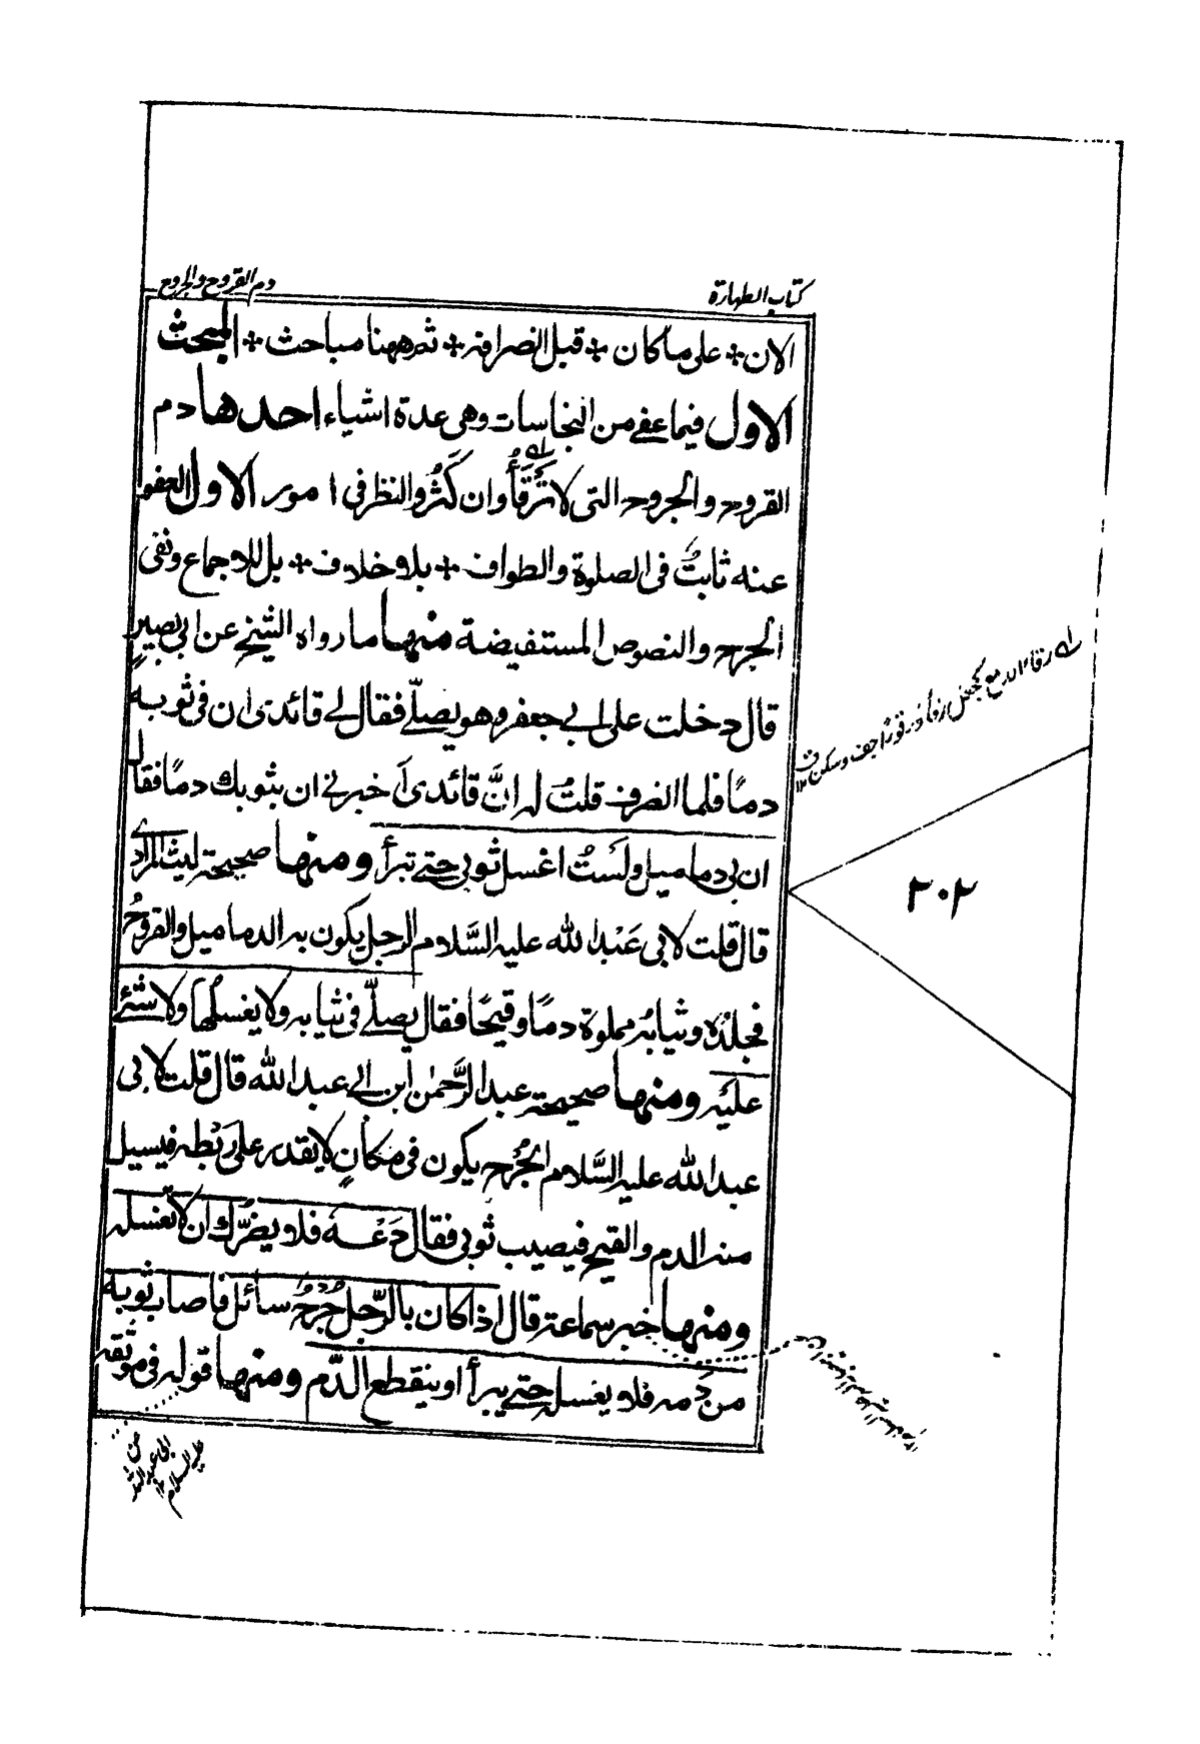 كتاب الطهارة
دم القروح والجروح
الان ÷ على ما كان ÷ قبل انصرافه ÷ ثم ههنا مباحث ÷ المبحث
الاول فيما عفى من النجاسات وهى عدة اشياء احدها دم
القروح والجروح التى لا تَرقَأُ وان كَثُر والنظر فى امور الاول العفو
عنه ثابتٌ فى الصلوة والطواف ÷ بلا خلاف ÷ بل للاجماع ونفى
الجرح والنصوص المستفيضة منها ما رواه الشيخ عن ابى بصيرٍ
قال دخلت على ابى جعفر وهو يصلّے فقال لے قائدى ان فى ثوبه
دمًا فلما انصرف قلتُ له انَّ قائدى اَخبرنى ان بثوبك دمًا فقال
ان بى دماميل ولَستُ اغسل ثوبى حتے تبرأ ومنها صحيحة ليث المرادے
قال قلت لابى عَبْدالله عليه السَّلام الرجل يكون به الدماميل والقروحُ
فجلدُه وثيابُه مملوة دمًا وقيحًا فقال يصلّے فى ثيابه ولا يغسلُها ولا شئے
عليَه ومنها صحيحة عبد الرَّحمٰن ابن ابے عبد الله قال قلت لابى
عبد الله عليه السَّلام الجُرح يكون فى مكانٍ لا يقدر على رَبْطه فيسيل
منه الدم والقيح فيصيب ثوبى فقال دَعْهُ فلا يضُرّك ان لا تغسله
ومنها خبر سماعة قال اذا كان بالرّجل جُرحٌ سائل فاصاب ثوبه
من دَمه فلا يغسله حتے يبرأ او ينقطع الدّم ومنها قوله فى موثقة
رقأ الدمع كجعل رقأ ورقوءً اجف وسكن ق ١٢
٢٠٢
عن
ابى عبد الله
عليه السلام ١٢